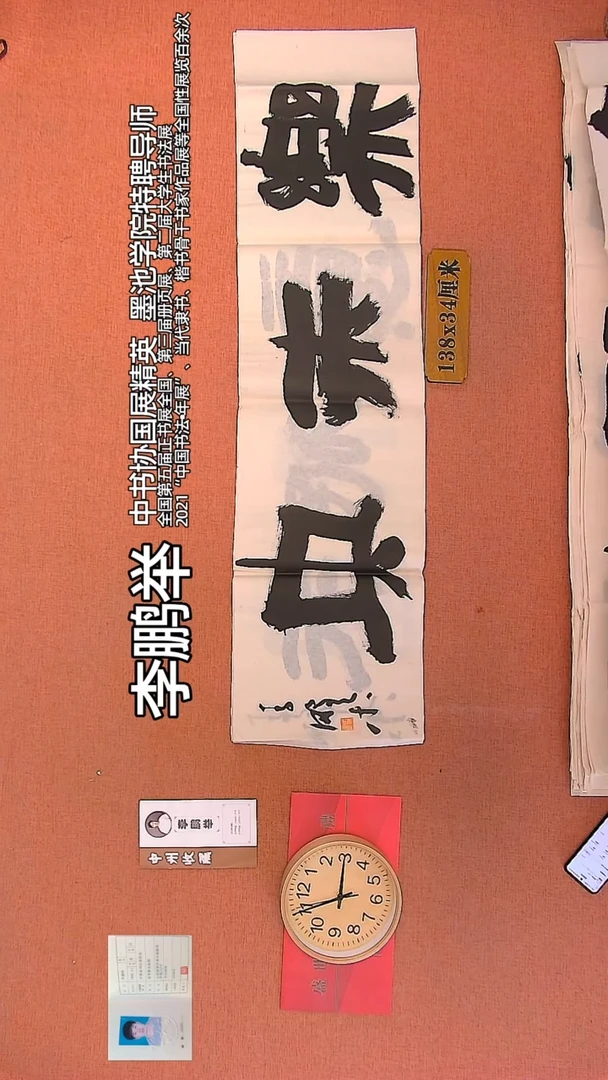 李鹏举
中书协国展精英 墨池学院特聘导师
全国第五届正书展全国、第三届册页展、第二届大学生书法展
2021“中国书法·年展”、当代隶书、楷书骨干书家作品展等全国性展览百余次
樂未央
138x34/厘米
李鹏举
中州收藏
12
1
2
3
4
5
6
7
8
9
10